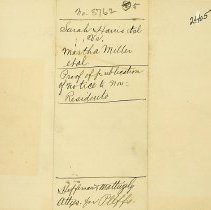 No. 8762
2465
Sarah Harris et al
vs.
Martha Miller
et al
Proof of publication
of notice to Non-
Residents
Heffernan & Mattingly
Attys. for Plffs